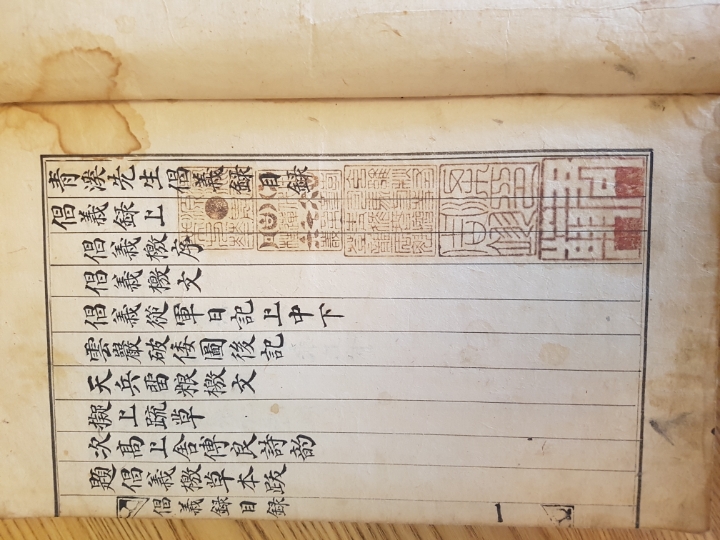 青溪先生倡義錄目錄
倡義錄上
倡義檄序
倡義檄文
倡義從軍日記上中下
雲巖破倭圖後記
天兵留粮檄文
擬上疏草
次高上舍傅良詩韵
題倡義檄草本跋
倡義錄目錄
一